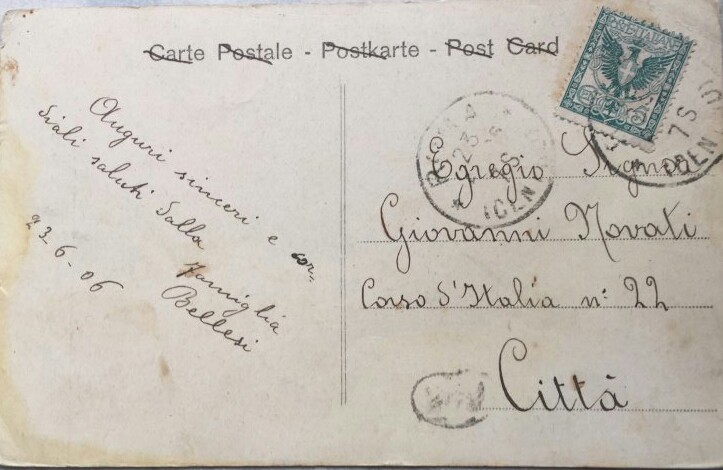 Carte Postale - Postkarte - Post Card
Auguri sinceri e cor-
diali saluti dalla
famiglia
Bellesi
23-6-06
Egregio Signor
Giovanni Novati
Corso d'Italia n: 22
Città
ROMA
23